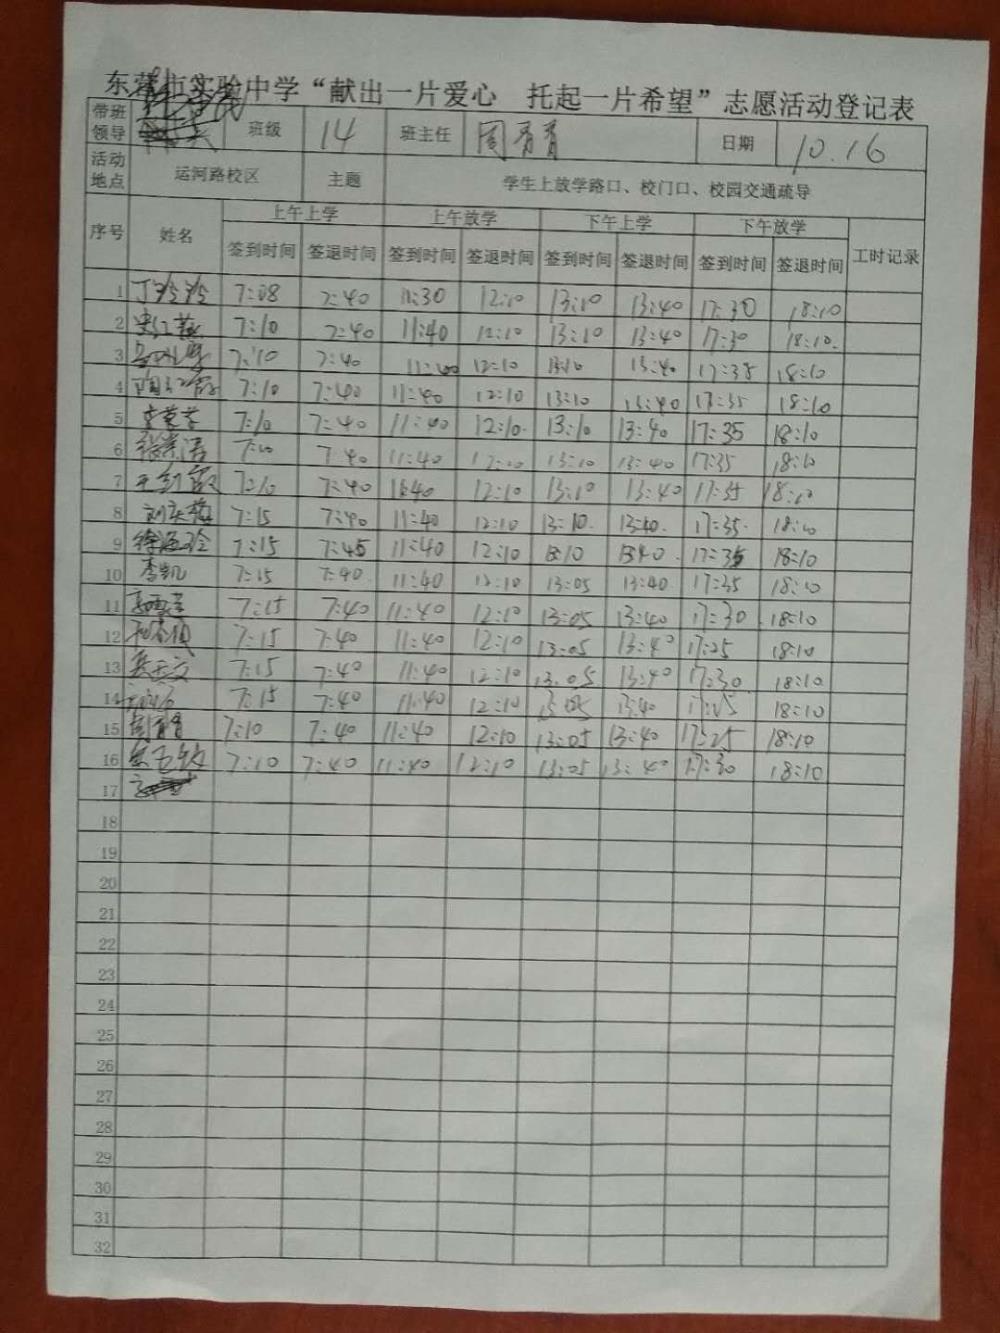 东营市实验中学“献出一片爱心 托起一片希望”志愿活动登记表
带班领导 班级 14 班主任 周青青 日期 10.16
活动地点 运河路校区 主题 学生上放学路口、校门口、校园交通疏导
序号 姓名 上午上学 上午放学 下午上学 下午放学 工时记录
签到时间 签退时间 签到时间 签退时间 签到时间 签退时间 签到时间 签退时间
1 丁玲玲 7:08 7:40 11:30 12:10 13:10 13:40 17:30 18:10
2 7:10 7:40 11:40 12:10 13:10 13:40 17:30 18:10.
3 7:10 7:40 11:40 12:10 13:10 13:40 17:35 18:10
4 7:10 7:40 11:40 12:10 13:10 13:40 17:35 18:10
5 7:10 7:40 11:40 12:10. 13:10 13:40 17:35 18:10
6 7:10 7:40 11:40 12:10 13:10 13:40 17:35 18:10
7 7:10 7:40 11:40 12:10 13:10 13:40 17:35 18:10
8 7:15 7:40 11:40 12:10 13:10. 13:40. 17:35. 18:10
9 7:15 7:45 11:40 12:10 13:10 13:40. 17:35 18:10
10 李凯 7:15 7:40 11:40 12:10 13:05 13:40 17:35 18:10
11 7:15 7:40 11:40 12:10 13:05 13:40 17:30. 18:10
12 7:15 7:40 11:40 12:10 13:05 13:40 17:25 18:10
13 7:15 7:40 11:40 12:10 13:05 13:40 17:30 18:10
14 7:15 7:40 11:40 12:10 13:05 13:40 18:10
15 周青青 7:10 7:40 11:40 12:10 13:05 13:40 17:25 18:10
16 7:10 7:40 11:40 12:10 13:05 13:40 17:30 18:10
17
18
19
20
21
22
23
24
25
26
27
28
29
30
31
32